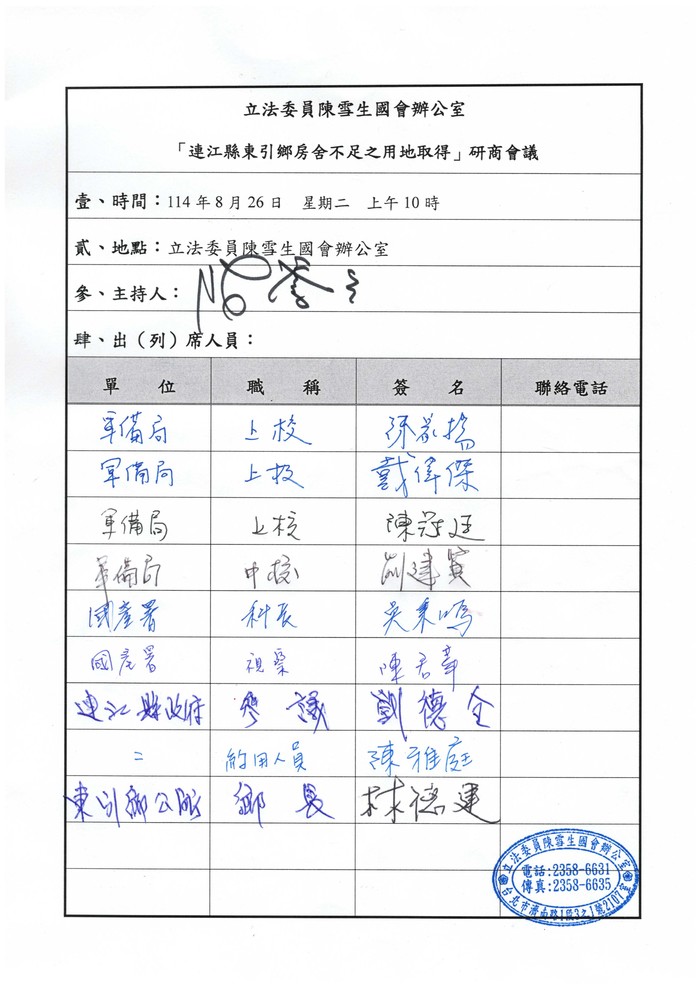 立法委員陳雪生國會辦公室
「連江縣東引鄉房舍不足之用地取得」研商會議
壹、時間：114年8月26日 星期二 上午10時
貳、地點：立法委員陳雪生國會辦公室
參、主持人：陳雪生
肆、出（列）席人員：
單位 職稱 簽名 聯絡電話
軍備局 上校
軍備局 上校 戴偉傑
軍備局 上校 陳冠廷
軍備局 中校 劉建
國產署 科長 吳秉鳴
國產署 視察 陳君
連江縣政府 參議 劉德全
〃 約用人員 陳雅庭
東引鄉公所 鄉長 林德建
立法委員陳雪生國會辦公室
電話:2358-6631
傳真:2358-6635
台北市濟南路1段3之1號2107室